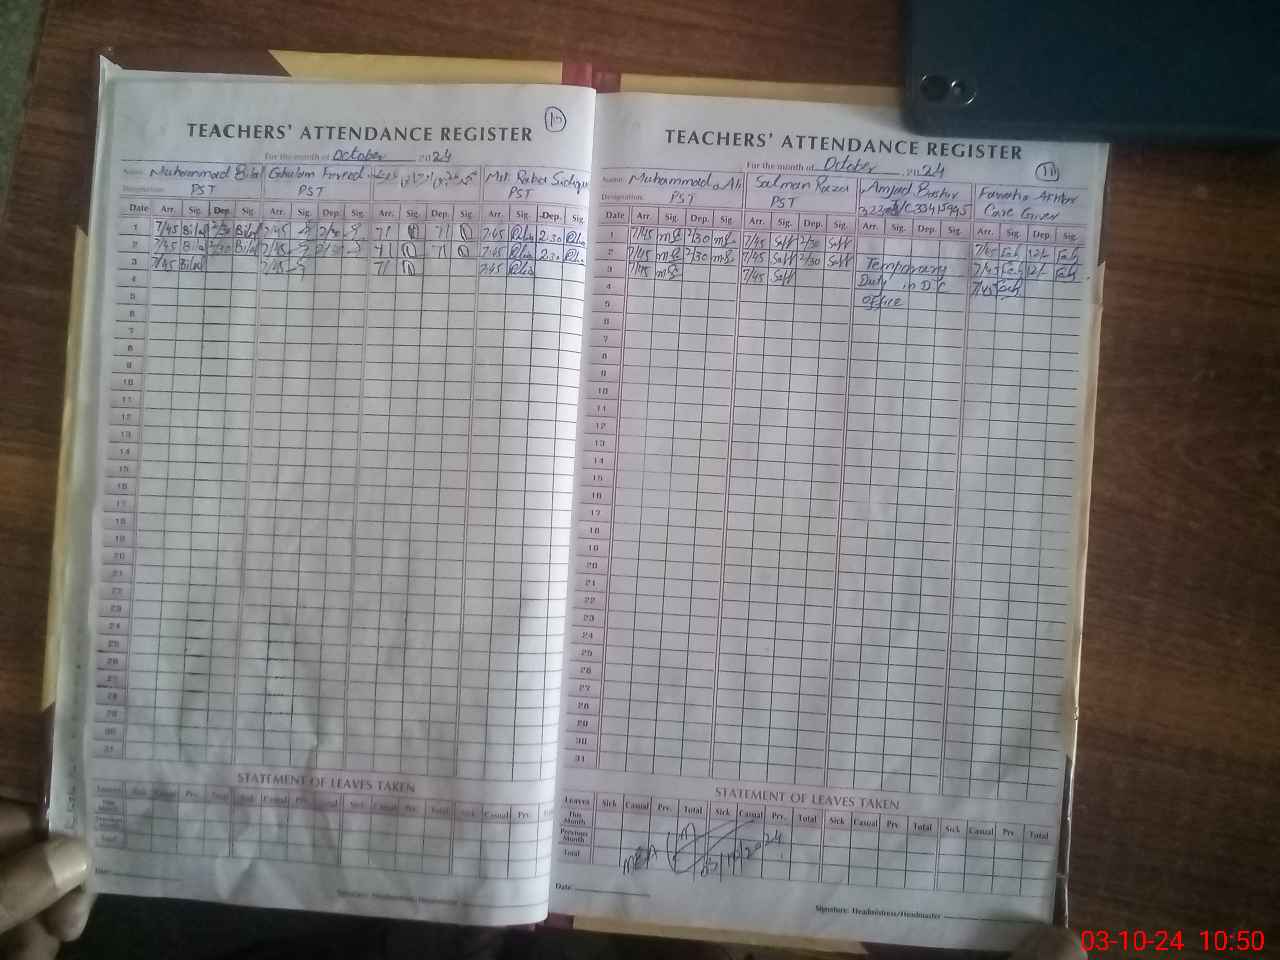 TEACHERS' ATTENDANCE REGISTER
For the month of October 2024
Name Muhammad Bilal Ghulam Fareed Mst. Rabia
Designation PST PST PST
Date Arr. Sig. Dep. Sig. Arr. Sig. Dep. Sig. Arr. Sig. Dep. Sig. Arr. Sig. Dep. Sig.
1 7/45 Bilal 2/30 Bilal 7/45 2/30 7/ 7/ 7:45 2:30
2 7/45 Bilal 2/30 Bilal 7/45 2/30 7/ 7/ 7:45 2:30
3 7/45 Bilal 7/45 7/ 7:45
4
5
6
7
8
9
10
11
12
13
14
15
16
17
18
19
20
21
22
23
24
25
26
27
28
29
30
31
STATEMENT OF LEAVES TAKEN
Leaves Sick Casual Prv. Total Sick Casual Prv. Total Sick Casual Prv. Total Sick Casual Prv.
This Month
Previous Month
Total
Date
Signature: Headmistress/Headmaster
TEACHERS' ATTENDANCE REGISTER
For the month of October 2024
11
Name Muhammad Ali Salman Raza Amjad Bashir Fawzia Akhtar
Designation PST PST Care Giver
Date Arr. Sig. Dep. Sig. Arr. Sig. Dep. Sig. Arr. Sig. Dep. Sig. Arr. Sig. Dep. Sig.
1 7/45 2/30 7/45 2/30 7/45 12/-
2 7/45 2/30 7/45 2/30 Temporary 7/45 12/-
3 7/45 7/45 Duty in DC 7/45
4
5 office
6
7
8
9
10
11
12
13
14
15
16
17
18
19
20
21
22
23
24
25
26
27
28
29
30
31
STATEMENT OF LEAVES TAKEN
Leaves Sick Casual Prv. Total Sick Casual Prv. Total Sick Casual Prv. Total Sick Casual Prv. Total
This Month
Previous Month
Total
MEA 03/10/2024
Date
Signature: Headmistress/Headmaster
03-10-24 10:50